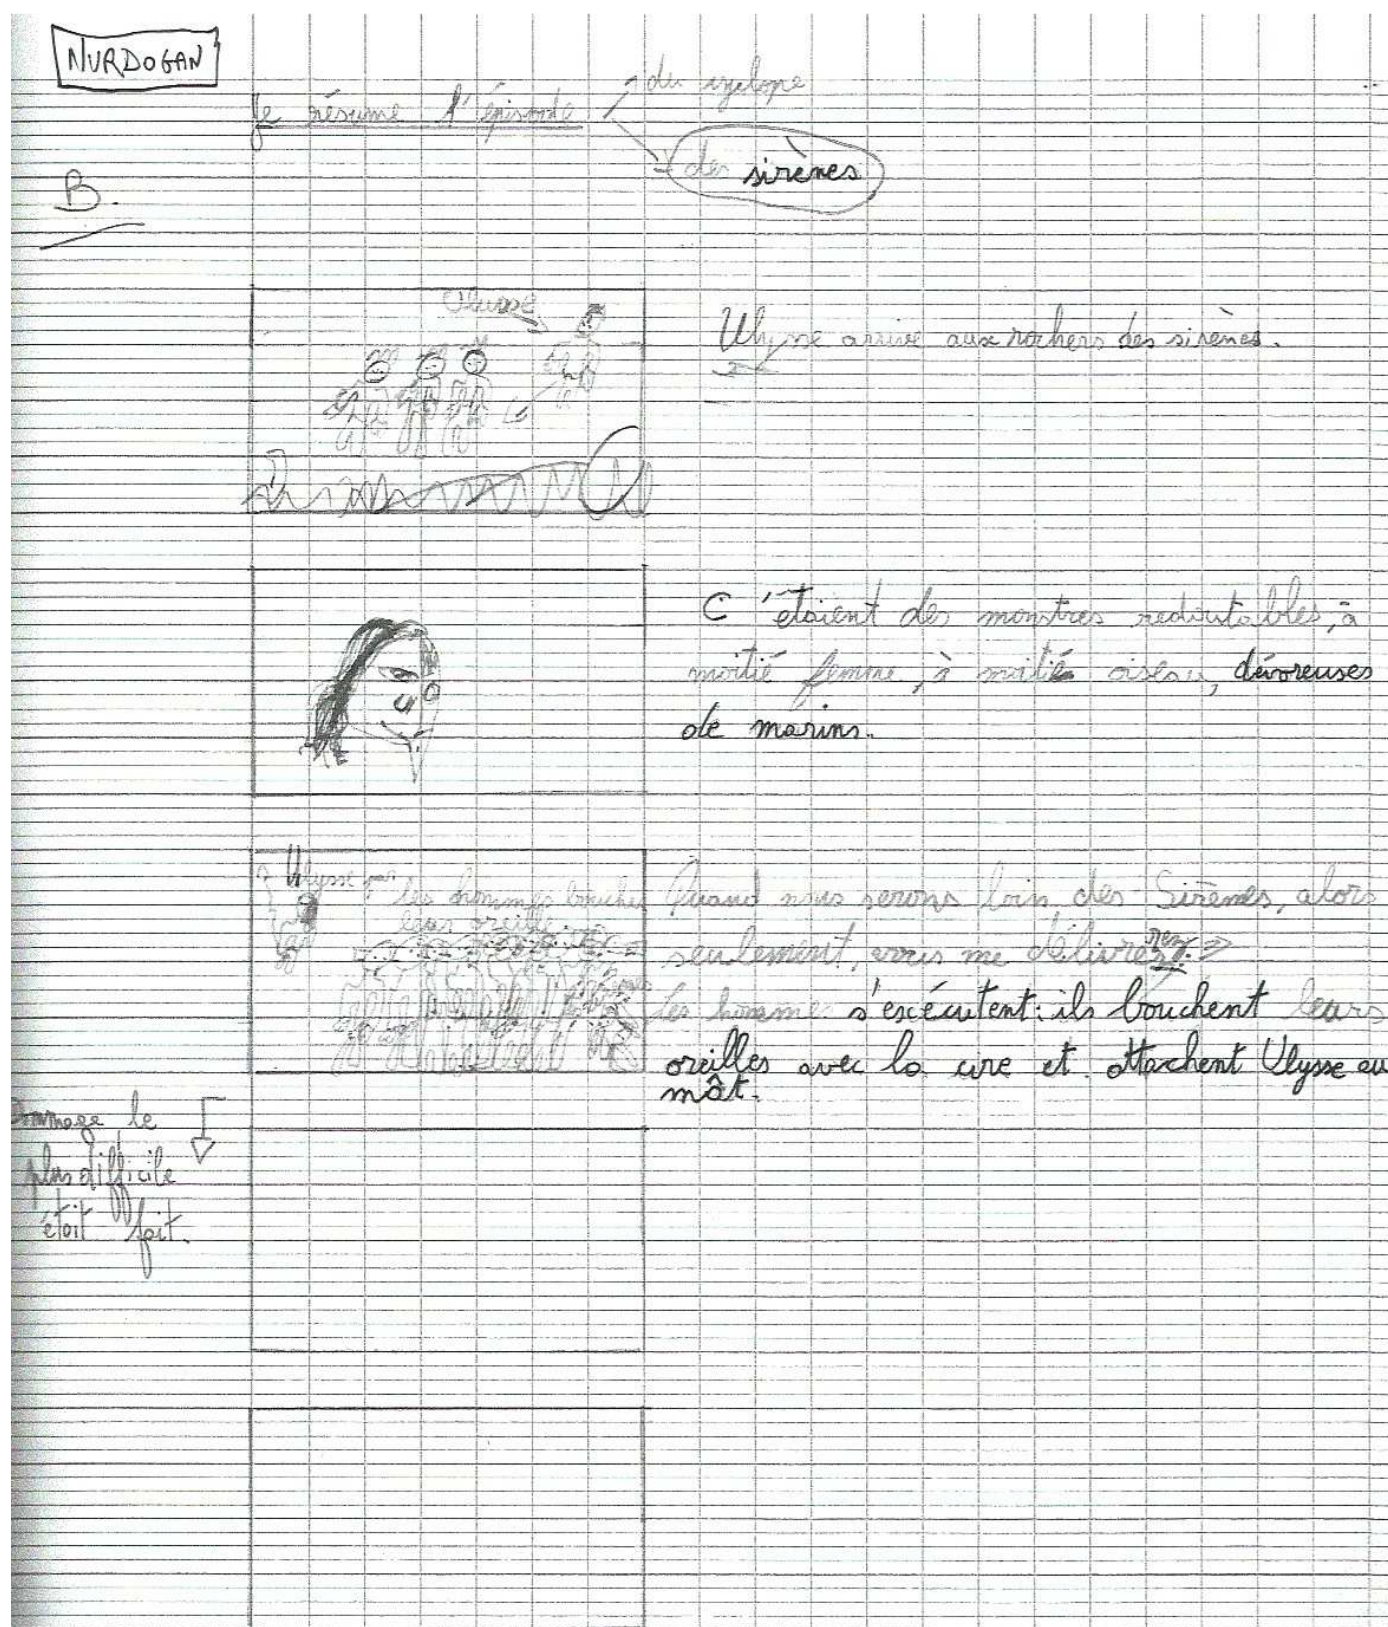 NURDOGAN
Je résume l'épisode
du cyclope
des sirènes
B.
Ulysse
Ulysse arrive aux rochers des sirènes.
C'étaient des monstres redoutables, à
moitié femme, à moitié oiseau, dévoreuses
de marins.
Ulysse
les hommes bouche
leur oreille
Quand nous serons loin des Sirènes, alors
seulement, vous me délivrerez. »
Les hommes s'exécutent: ils bouchent leurs
oreilles avec la cire et attachent Ulysse au
mât.
Dommage le
plus difficile
était fait.